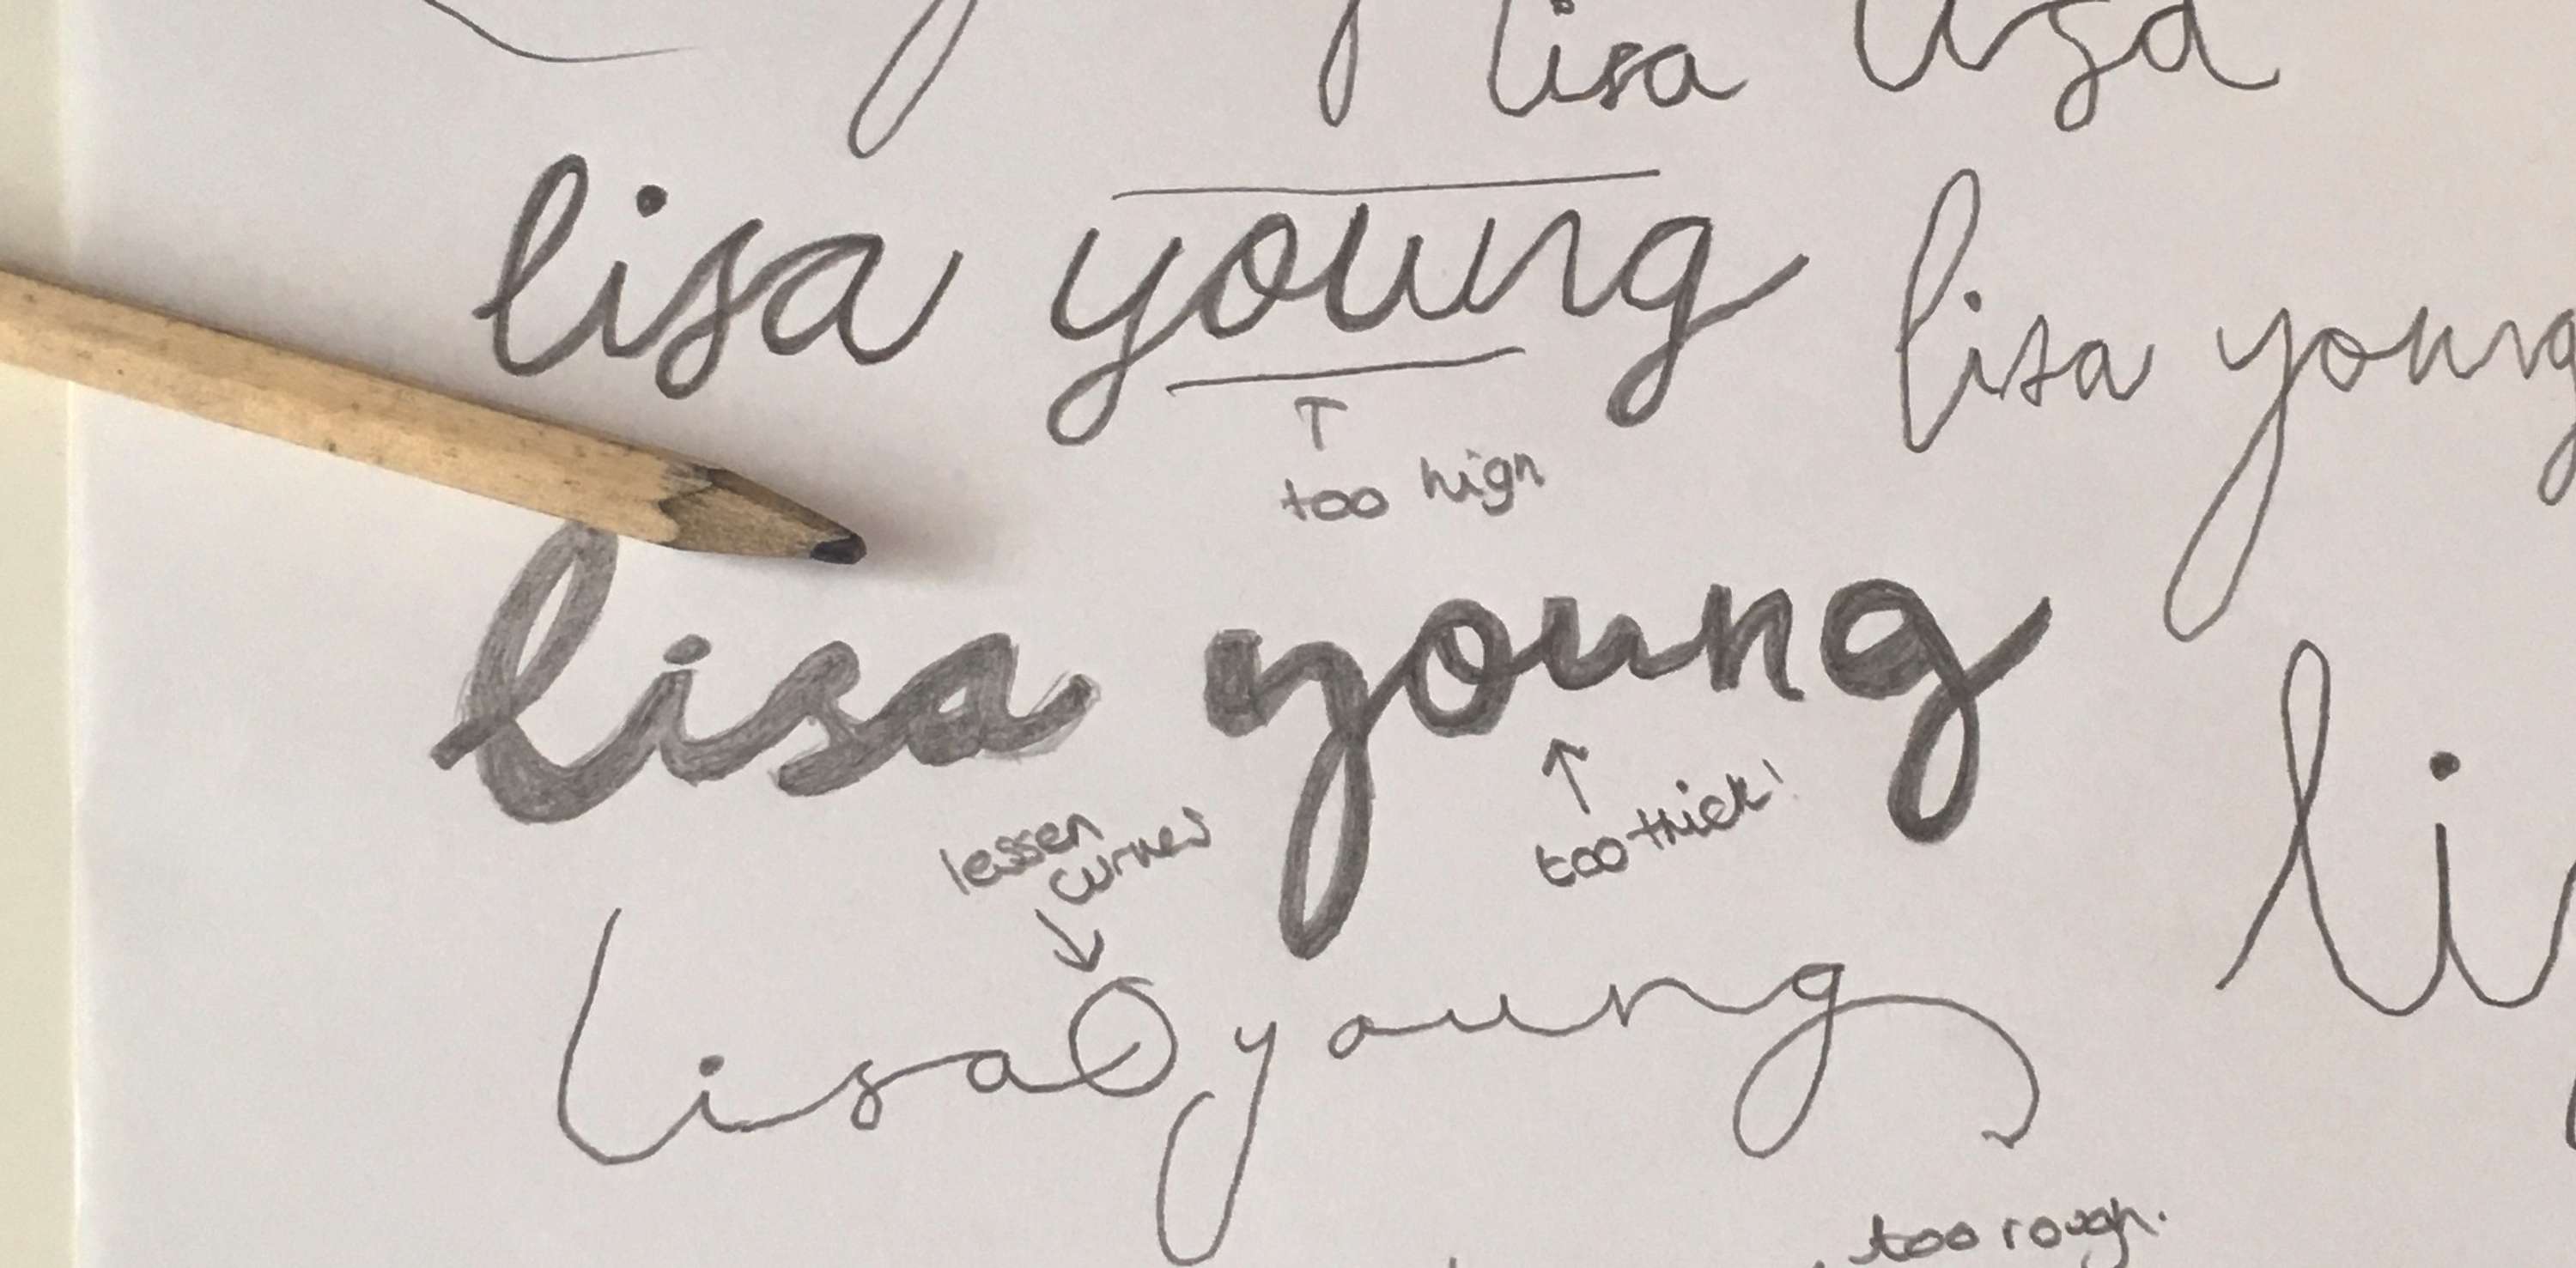 lisa lisa
lisa young
lisa young
too high
lisa young
too thick!
lessen
curves
lisa young
li
too rough.